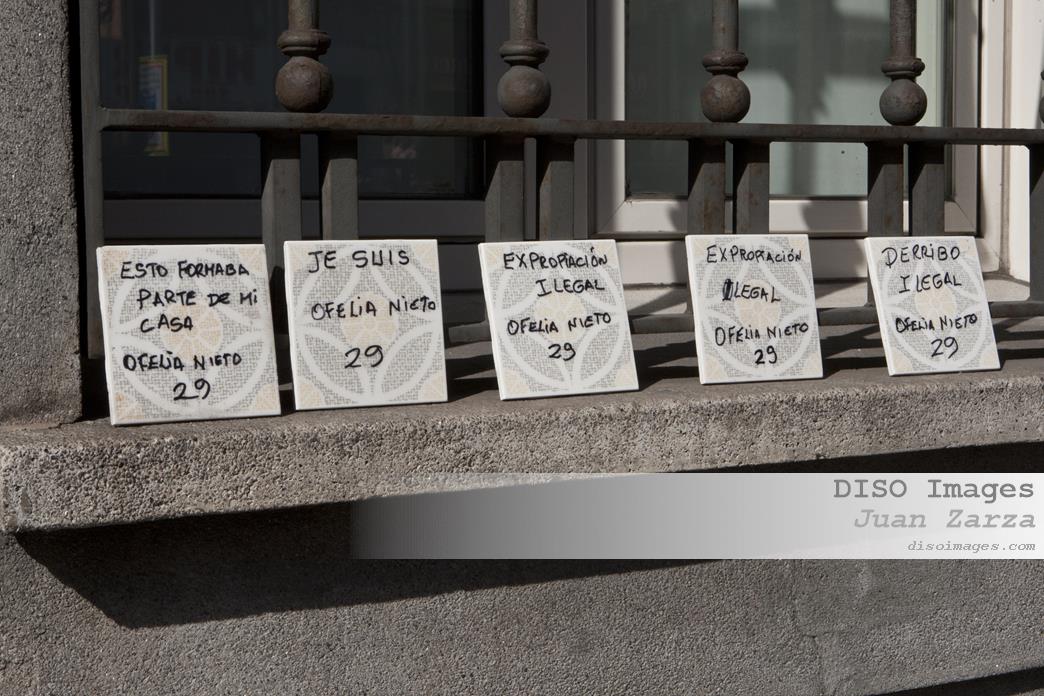 ESTO FORMABA
PARTE DE MI
CASA
OFELIA NIETO
29
JE SUIS
OFELIA NIETO
29
EXPROPIACIÓN
ILEGAL
OFELIA NIETO
29
EXPROPIACIÓN
ILEGAL
OFELIA NIETO
29
DERRIBO
ILEGAL
OFELIA NIETO
29
DISO Images
Juan Zarza
disoimages.com